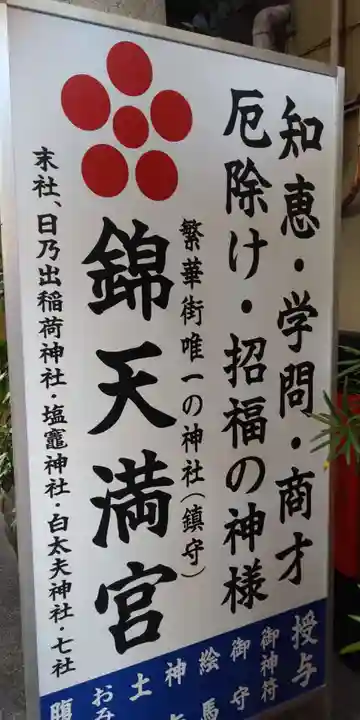 知恵・学問・商才
厄除け・招福の神様
繁華街唯一の神社(鎮守)
錦天満宮
末社、日乃出稲荷神社・塩竈神社・白太夫神社・七社
授与
御神符
御守
絵馬
神
土
おみ